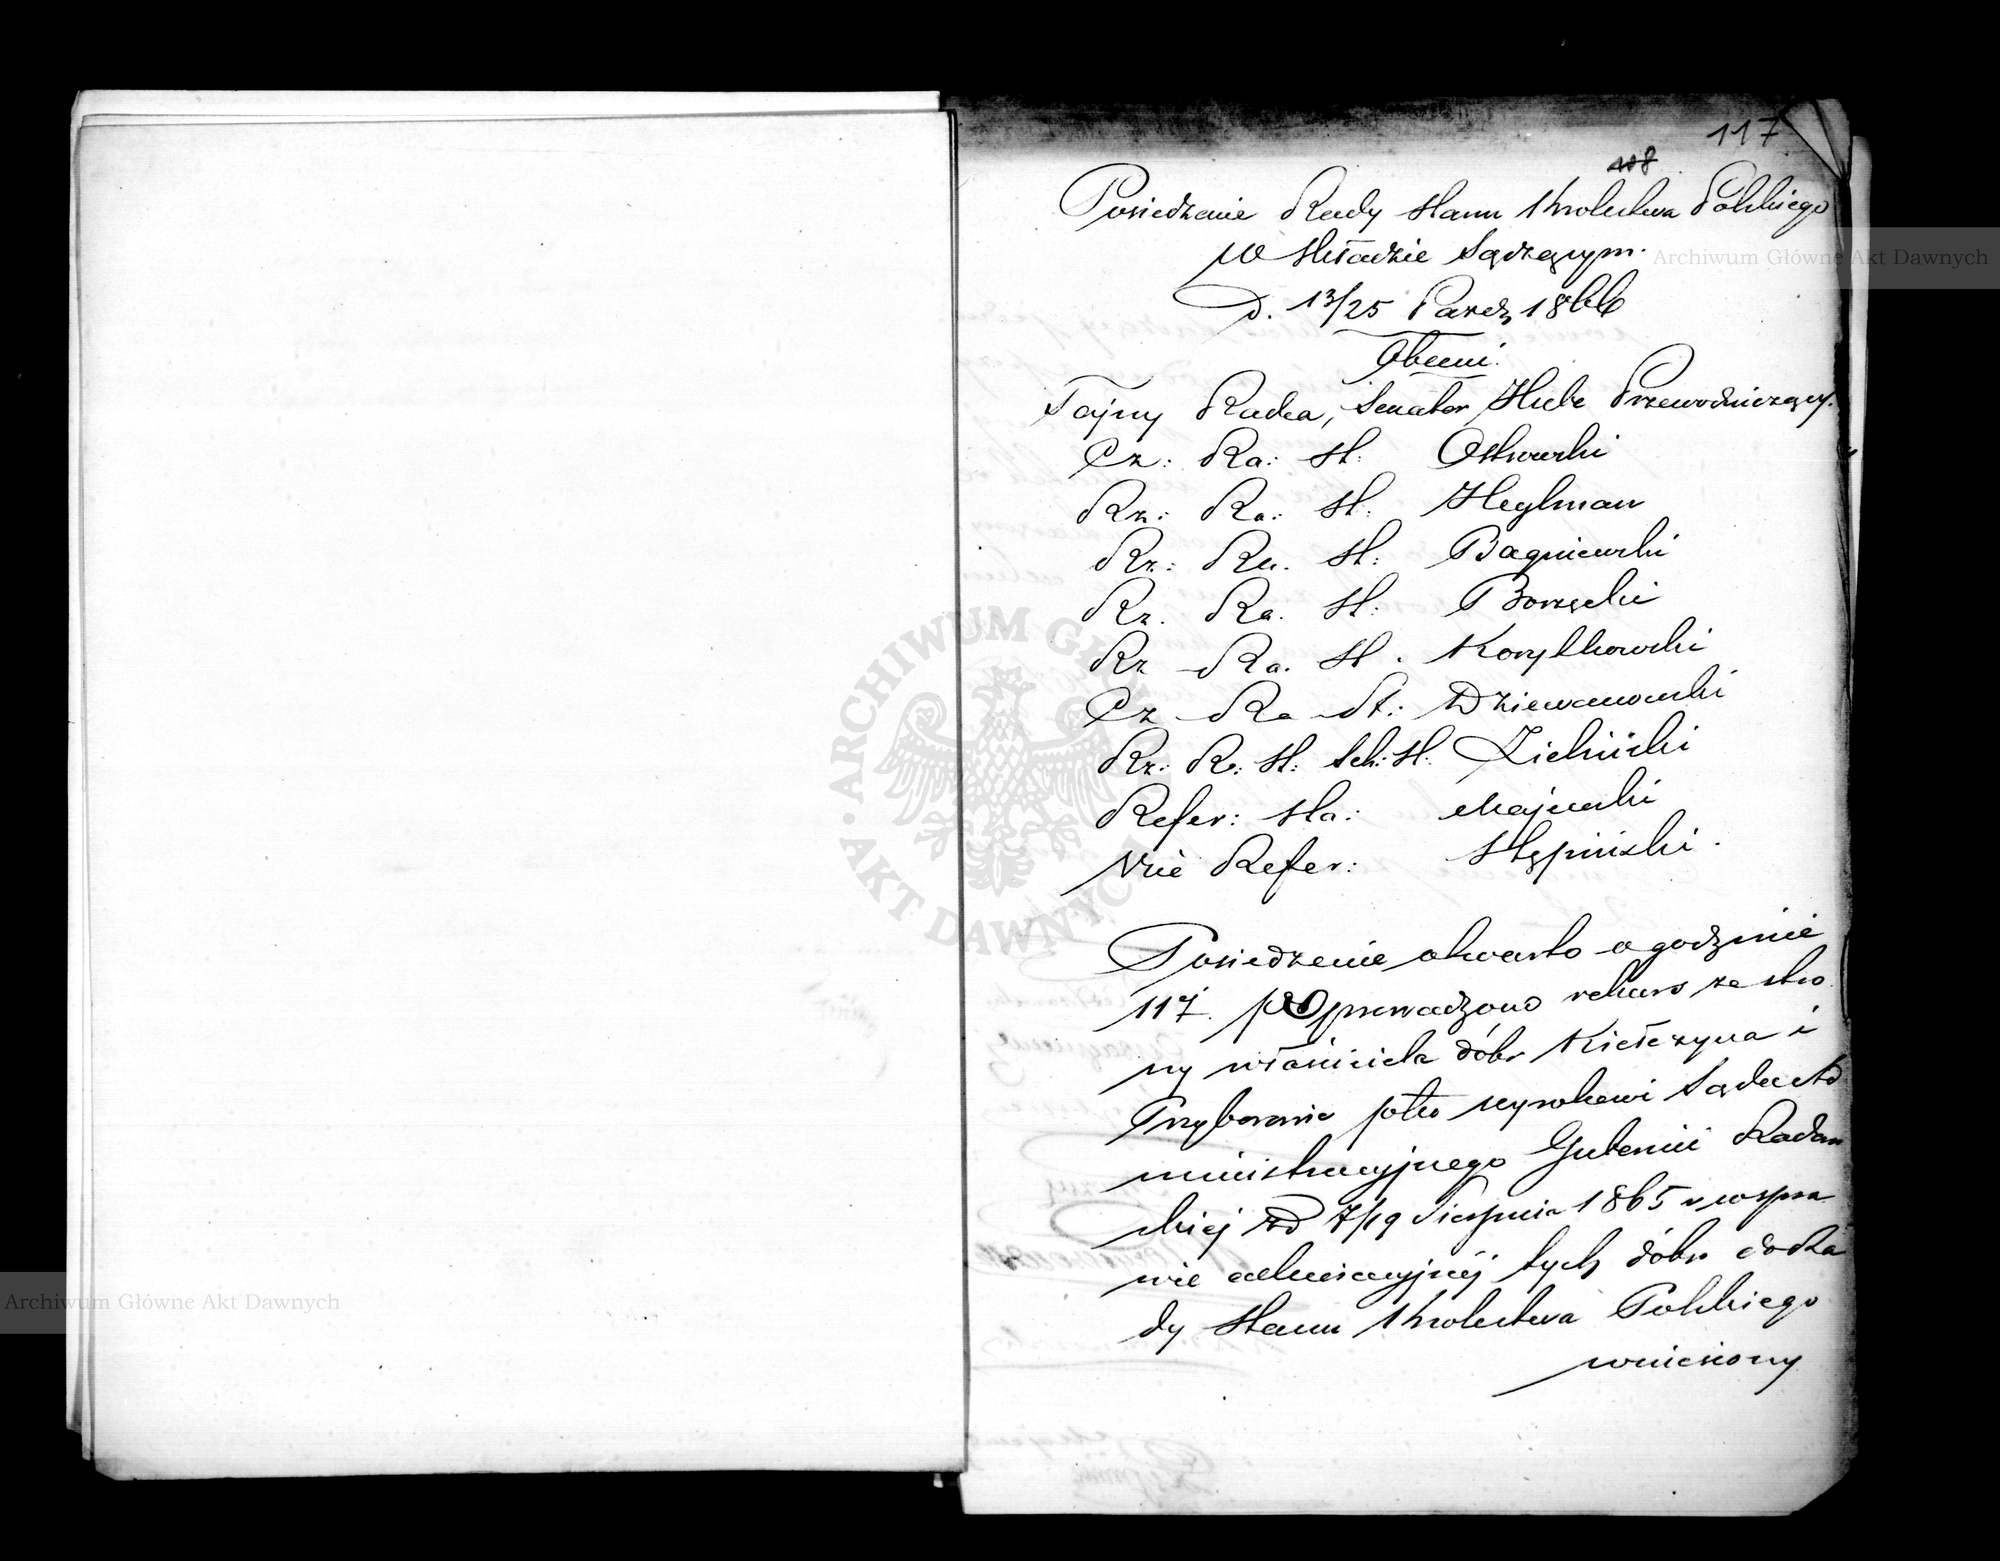 117
108
Posiedzenie Rady Stanu Królestwa Polskiego
w Składzie Sądzącym.
d. 13/25 Paźdz 1866
Obecni.
Tajny Radca, Senator Hube Przewodniczący.
Cz: Ra: St: Ostrowski
Rz: Ra: St: Heylman
Rz: Ra. St: Bagniewski
Rz. Ra. St: Borzęcki
Rz Ra. St. Korytkowski
Cz Ra St: Dziewanowski
Rz: R: St: Sek: St: Zieliński
Refer: Sta: Majewski
Vice Refer: Stępiński.
Posiedzenie otwarto o godzinie
11 wprowadzono rekurs ze stro
ny właściciela dóbr Kiełczyna i
Przyborowie ptko wyrokowi Sądu Ad
ministracyjnego Gubernii Radom
skiej z d 7/19 Sierpnia 1865 r w spra
wie edukacyjnej tych dóbr do Ra
dy Stanu Królestwa Polskiego
wniesiony
Archiwum Główne Akt Dawnych
ARCHIWUM GŁÓWNE AKT DAWNYCH
Archiwum Główne Akt Dawnych